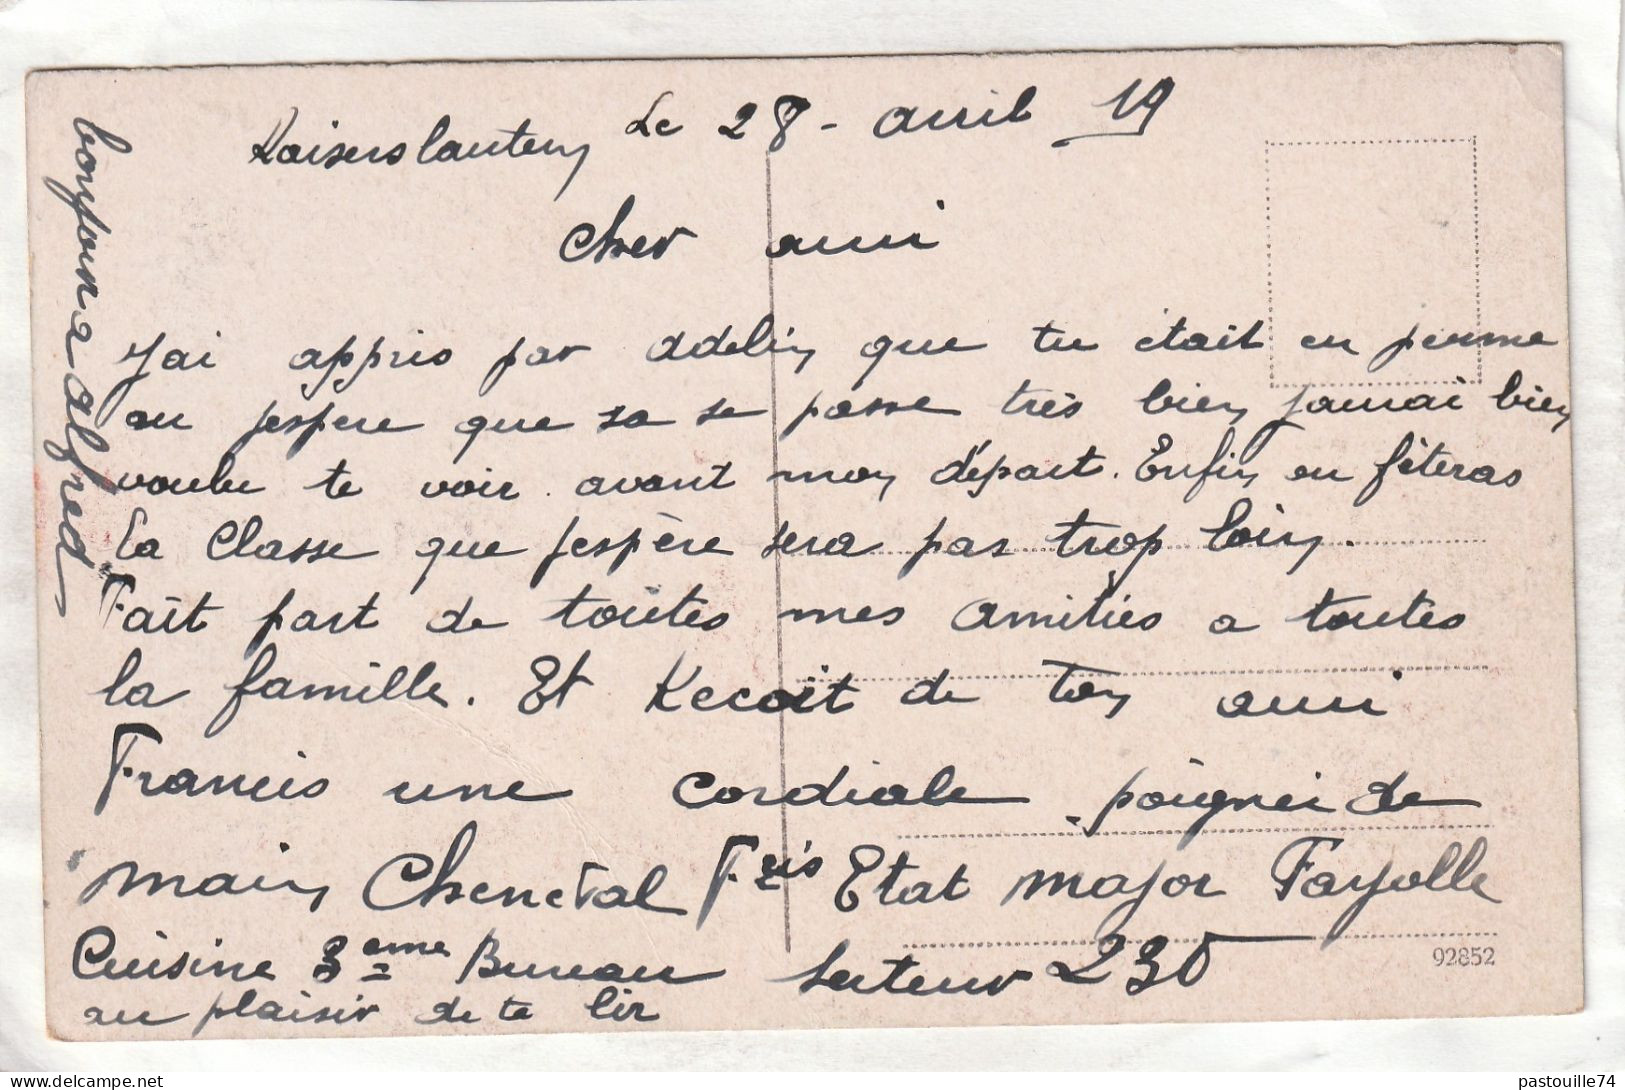 Kaiserslautern Le 28 - avril 19
Cher ami
J'ai appris par Adelin que tu était en perme
au jespere que sa se passe très bien jaurai bien
voulu te voir avant mon départ. Enfin on fêteras
la Classe que jespère sera pas trop loin.
Fait part de toutes mes amitiés a toutes
la famille. Et Recoit de ton ami
Francis une cordiale poignei de
main Cheneval Fris Etat major Fayolle
Cuisine 3eme Bureau secteur 230
au plaisir de te lir
bonjour a alfred
92852
pastouille74